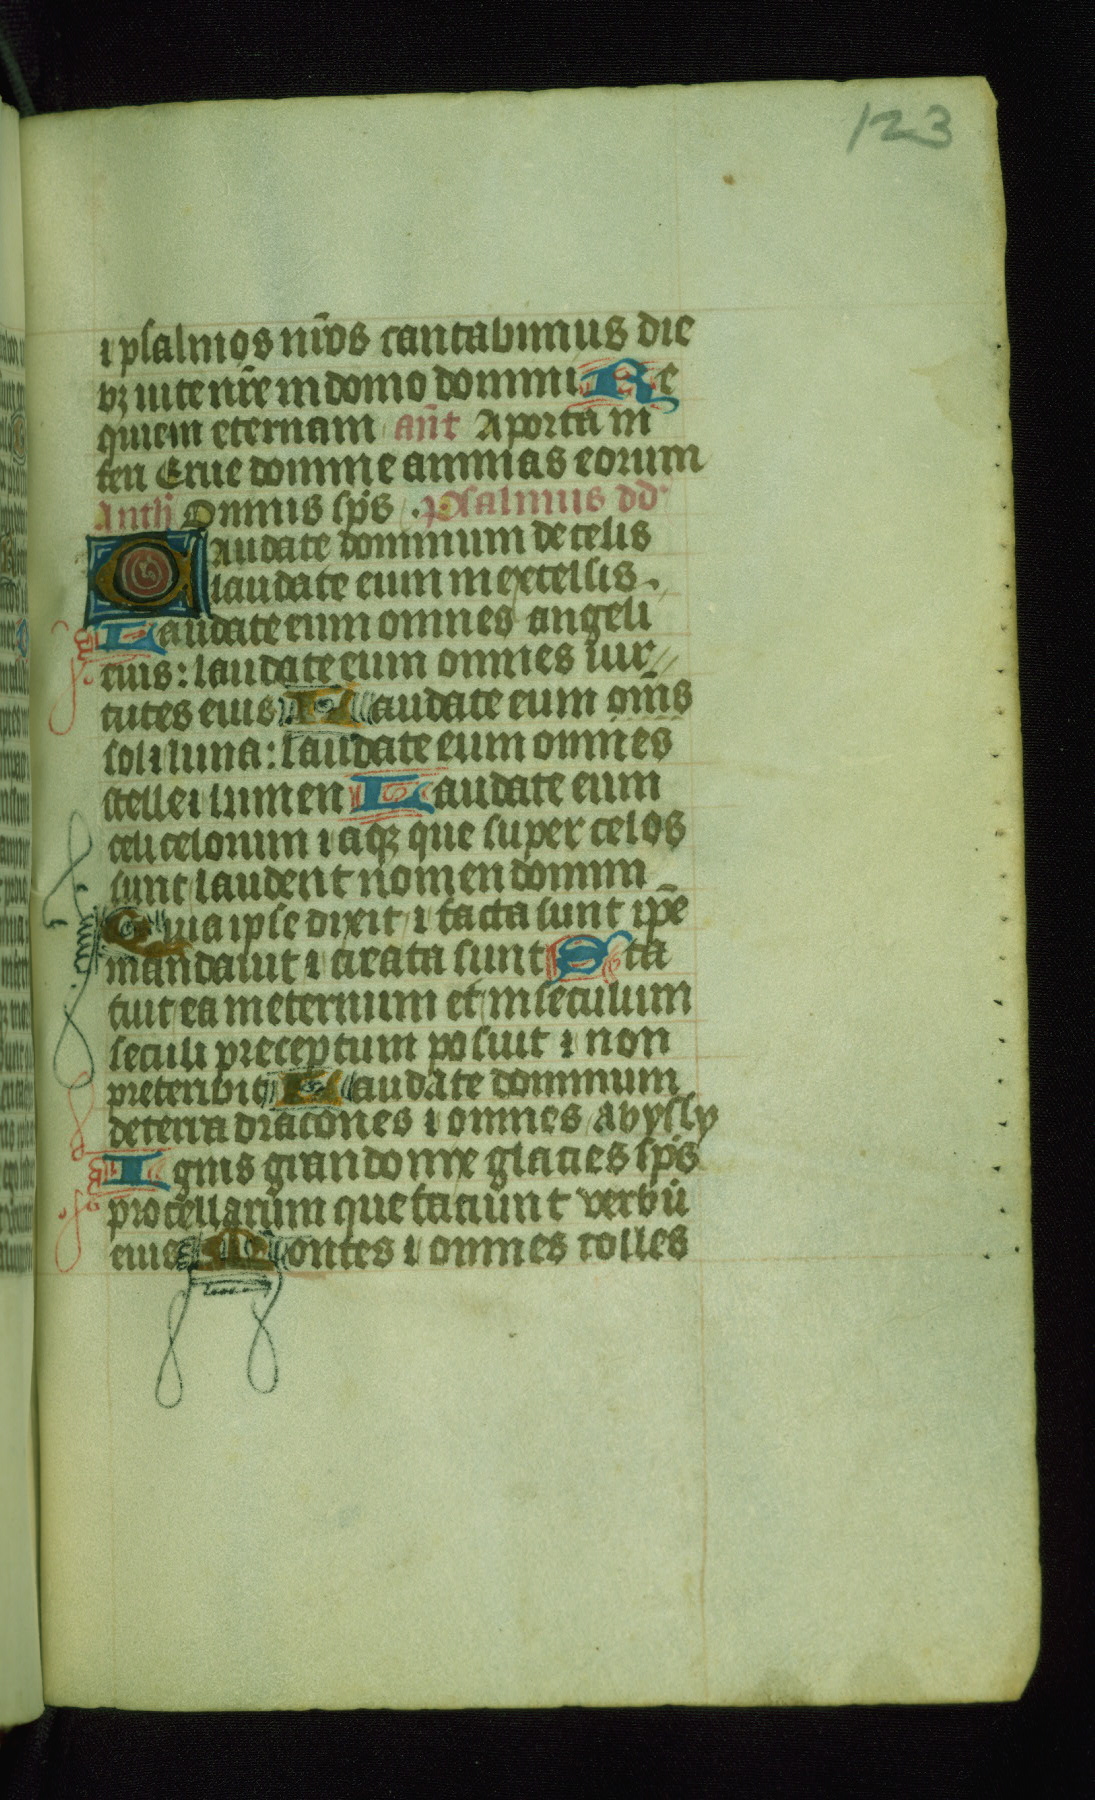 123
⁊ psalmos nr̄os cantabimus die
bꝫ uite nr̄e in domo domini Re
quiem eternam an̄t A porta in
feri Erue domine animas eorum
Antħ Omnis sp̄s . psalmus dd
Laudate dominum de celis
laudate eum in excelsis .
Laudate eum omnes angeli
eius : laudate eum omnes uir
tutes eius Laudate eum om̄s
sol ⁊ luna : laudate eum omnes
stelle ⁊ lumen Laudate eum
celi celorum ⁊ aqꝫ que super celos
sunt laudent nomen domini
Quia ipse dixit ⁊ facta sunt ip̄e
mandauit ⁊ creata sunt Sta
tuit ea in eternum et in seculum
seculi preceptum posuit ⁊ non
preteribit Laudate dominum
de terra dracones ⁊ omnes abyssy
Ignis grando nix glacies sp̄s
procellarum que faciunt verbū
eius Montes ⁊ omnes colles